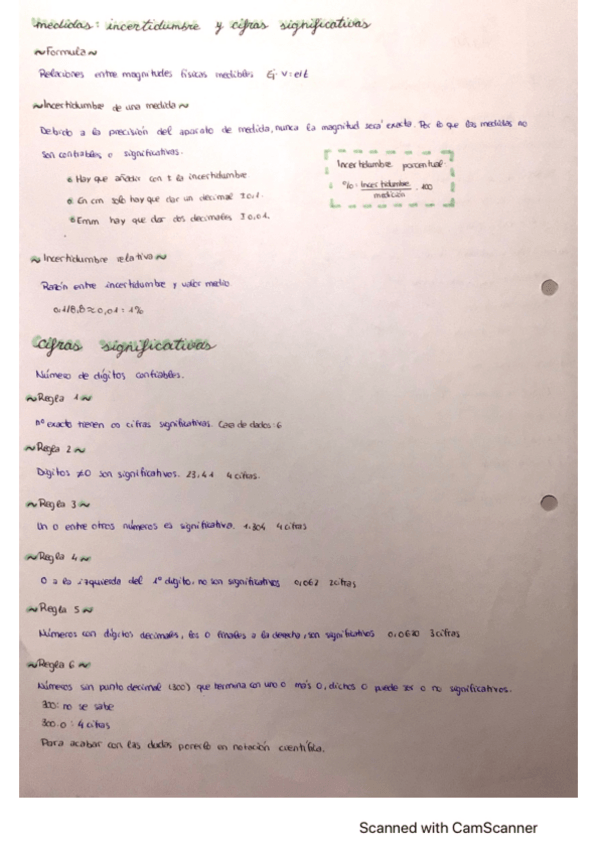 medidas: incertidumbre y cifras significativas
~Formula~
Relaciones entre magnitudes físicas medibles Ej. V=e/t
~Incertidumbre de una medida~
Debido a la precisión del aparato de medida, nunca la magnitud será exacta. Por lo que las medidas no
son contrables o significativas.
Hay que añadir con ± la incertidumbre.
En cm solo hay que dar un decimal ±0,1.
En mm hay que dar dos decimales ±0,01.
Incertidumbre porcentual:
%: incertidumbre / medición . 100
~Incertidumbre relativa~
Razón entre incertidumbre y valor medio
0,1/8,8≈0,01 = 1%
cifras significativas
Número de dígitos confiables.
~Regla 1~
nº exacto tienen ∞ cifras significativas. Cara de dados: 6
~Regla 2~
Dígitos ≠0 son significativos. 23,44 4 cifras.
~Regla 3~
Un 0 entre otros números es significativo. 1.304 4 cifras
~Regla 4~
0 a la izquierda del 1º dígito, no son significativos 0,062 2cifras
~Regla 5~
Números con dígitos decimales, los 0 finales a la derecha, son significativos 0,0620 3 cifras
~Regla 6~
Números sin punto decimal (300) que termina con uno o más 0, dichos 0 puede ser o no significativos.
300: no se sabe
300.0 : 4 cifras
Para acabar con las dudas ponerlo en notación científica.
Scanned with CamScanner